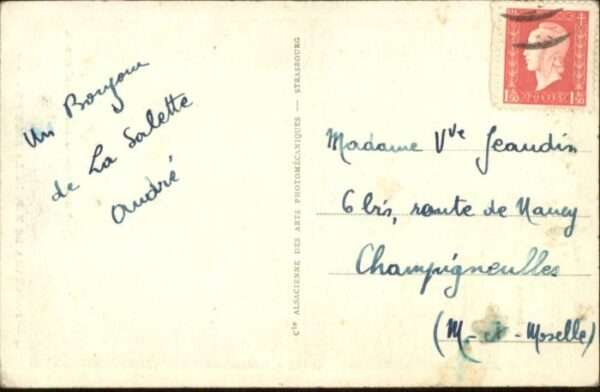 Un Bonjour
de La Salette
André
Cie ALSACIENNE DES ARTS PHOTOMÉCANIQUES — STRASBOURG
1F50 1F50
Madame Vve Jeandin
6 bis, route de Nancy
Champigneulles
(M.-et-Moselle)